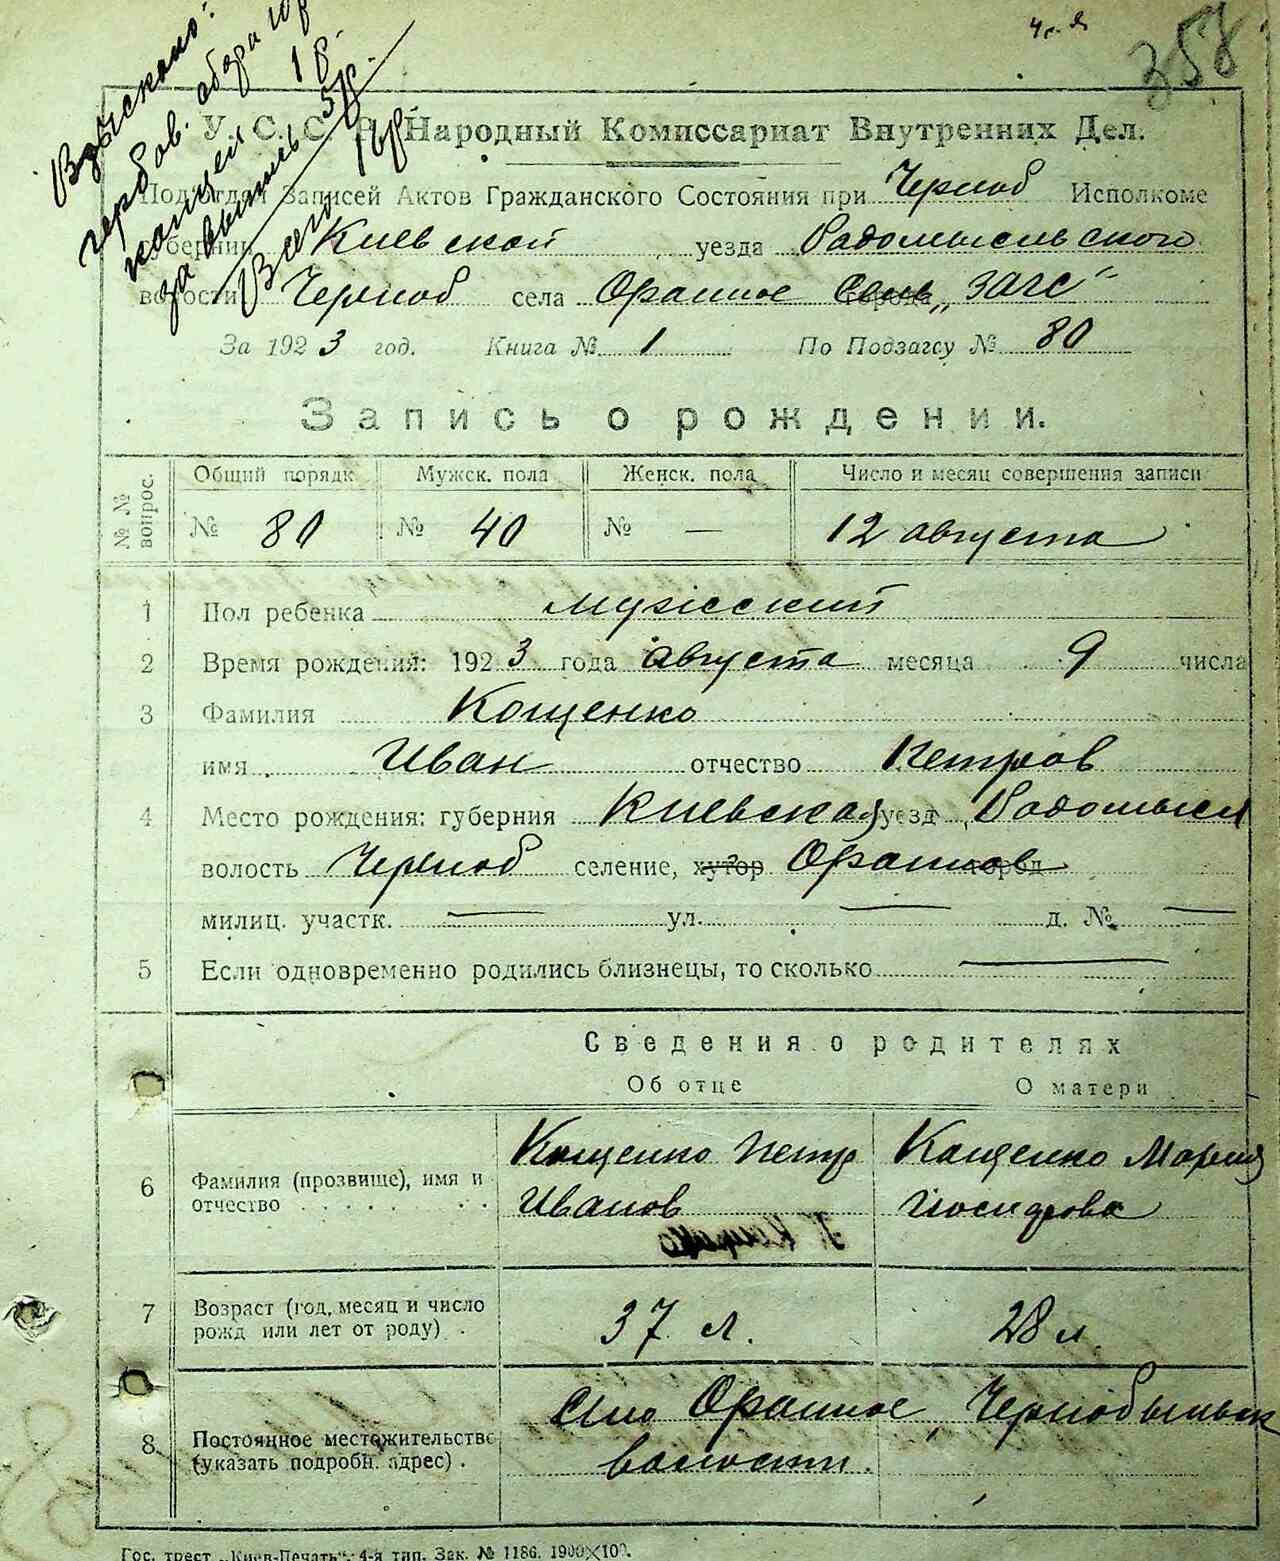 358
Взыскано:
гербов. сбора 10 р
канцел 1 р.
за
Всего 16 р
У. С. С. Р. Народный Комиссариат Внутренних Дел.
Подотдел Записей Актов Гражданского Состояния при Черноб Исполкоме
губернии Киевской уезда Радомысльского
волости Черноб села Оранное города „ЗАГС“
За 1923 год. Книга № 1 По Подзагсу № 80
Запись о рождении.
№ № вопрос. Общий порядк Мужск. пола Женск. пола Число и месяц совершения записи
№ 80 № 40 № — 12 августа
1 Пол ребенка мужеский
2 Время рождения: 1923 года августа месяца 9 числа
3 Фамилия Кощенко
имя Иван отчество Петров
4 Место рождения: губерния Киевская уезд Радомысл
волость Черноб селение, хутор Оранное город
милиц. участк. — ул. — д. № —
5 Если одновременно родились близнецы, то сколько —
Сведения о родителях
Об отце О матери
6 Фамилия (прозвище), имя и отчество . . . . . . . Кощенко Петр Иванов Кащенко Мария
7 Возраст (год, месяц и число рожд или лет от роду) . 37 л. 28 л.
8 Постоянное местожительство (указать подробн. адрес) . Село Оранное, Чернобыльск волости.
Гос. трест „Киев-Печать“. 4-я тип. Зак. № 1186. 1900×100.